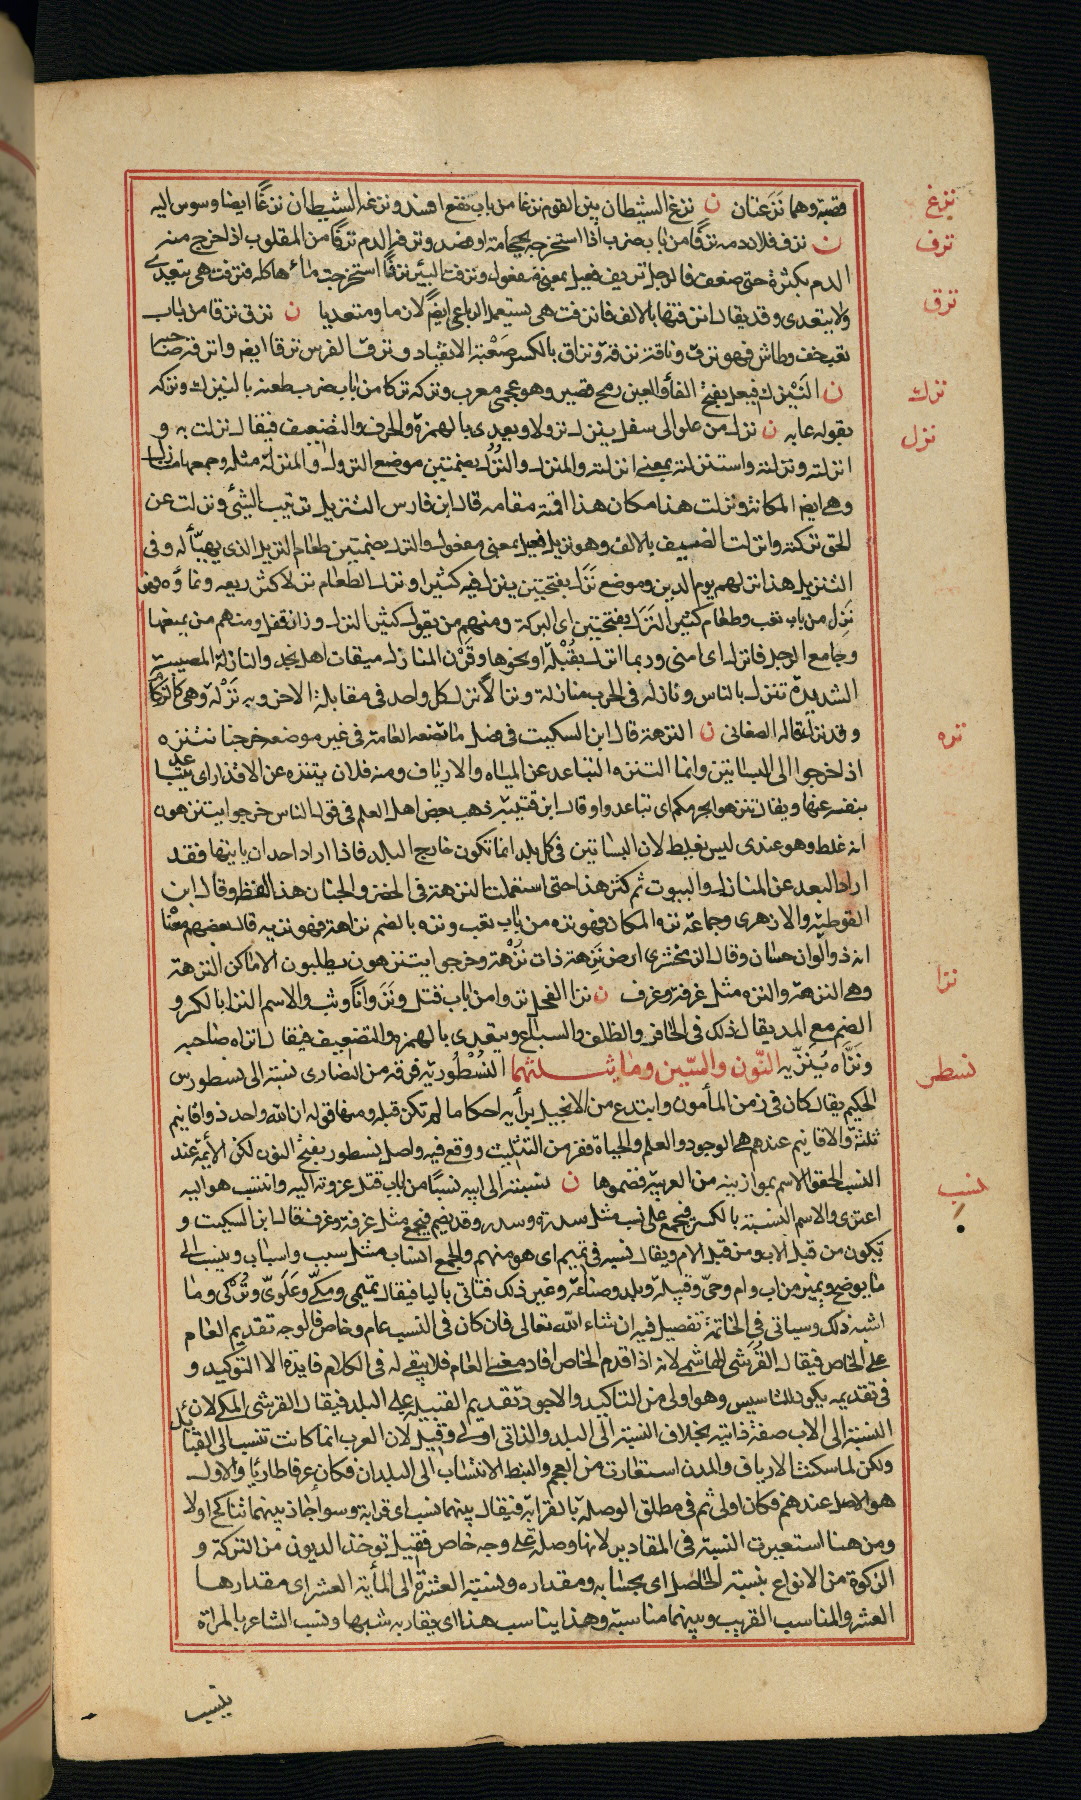 قصبة وهما نزعتان ن نزغ الشيطان بين القوم نزغا من باب نفع افسد ونزغه الشيطان نزغًا ايضا وسوس اليه
ن نزف فلان دمه نزفًا من باب ضرب اذا استخرجه بحجامة او فصد ونزفه الدم نزفًا من المقلوب اذا خرج منه
الدم بكثرة حتى ضعف فالرجل نزيف فعيل بمعنى مفعول ونزفت البئر نزفًا استخرجت مائها كله فنزفت هي يتعدى
ولا يتعدى وقد يقال انزفتها بالالف فانزفت هي يستعمل الرباعي ايضً لازما ومتعديا ن نزق نزقا من باب
تعب خف وطاش فهو نزق وناقة نزقة ونزاق بالكسر صَعْبة الانقياد ونزق الفرس نزقا ايضا وانزقه صاحبه
ن النَيْزك فيعل بفتح الفاء والعين رمح قصير وهو عجمي معرب ونزكه نزكا من باب ضرب طعنه بالنيزك ونزكه
بقوله عابه ن نزل من علو الى سفل ينزل نزولا ويعدى بالهمزة والحرف والتضعيف فيقال نزلت به و
انزلته ونزلته واستنزلته بمعنى انزلته والمنزل والنُزُل بضمتين موضع النزول والمنزلة مثله وجمعها منازل
وهي ايضا المكانة ونزلت هذا مكان هذا اقمته مقامه قال ابن فارس التنزيل ترتيب الشئ ونزلت عن
الحق تركته وانزلت الضيف بالالف وهو نزيل فعيل بمعنى مفعول والنزل بضمتين طعام النزيل الذي يهيّأ له وفي
التنزيل هذا نزلهم يوم الدين وموضع نَزَل بفتحتين ينزل فيه كثيرا ونزل الطعام نزلا كثر ريعه ونماؤه فهو
نَزِل من باب تعب وطعام كثير النَزَل بفتحتين اي البركة ومنهم من يقول كثير النزل وزان قفل ومنهم من يمنعها
وجامع الرجل فانزل اي امنى وربما انزل بقُبْلة او نحوها وقَرْن المنازل ميقات اهل نجد والنازلة المصيبة
الشديدة تنزل بالناس ونازله في الحرب منازلة ونزالًا نزل كل واحد في مقابلة الاخر وبه نَزْلة وهي كالزكام
وقد نزل قاله الصغاني ن النزهة قال ابن السكيت في فصل ما تضعه العامة في غير موضعه خرجنا نتنزه
اذا خرجوا الى البساتين وانما التنزه التباعد عن المياه والارياف ومنه فلان يتنزه عن الاقذار اي يتباعد
بنفسه عنها ويقال تنزهوا بحرمكم اي تباعدوا وقال ابن قتيبة ذهب بعض اهل العلم في قول الناس خرجوا يتنزهون
انه غلط وهو عندي ليس بغلط لان البساتين في كل بلد انما تكون خارج البلد فاذا اراد احد ان ياتيها فقد
اراد البعد عن المنازل والبيوت ثم كثر هذا حتى استعملت النزهة في الخضر والجنان هذا لفظه وقال ابن
القوطية والازهري وجماعة نزه المكان فهو نزه من باب تعب ونزه بالضم نزاهة فهو نزيه قال بعضهم معناه
انه ذو الوان حسان وقال الزمخشري ارض نَزِهة ذات نُزْهة وخرجوا يتنزهون يطلبون الاماكن النزهة
وهي النزهة والنزه مثل غرفة وغرف ن نزا الفحل نزوا من باب قتل ونَزَوانًا وثب والاسم النزا بالكسر و
الضم مع المد يقال ذلك في الحافر والظلف والسباع ويتعدى بالهمزة والتضعيف فيقال انزاه صاحبه
ونَزَّاه يُنَزِّيه النّون والسّين وما يثلثهما النُسْطُورية فرقة من النصارى نسبة الى نسطورس
الحكيم يقال كان في زمن المأمون وابتدع من الانجيل برأيه احكاما لم تكن قبله ومنها قوله ان الله واحد ذو اقانيم
ثلثة والاقانيم عندهم هي الوجود والعلم والحياة ففر من التثليث ووقع فيه واصل نسطور بفتح النون لكن الأيمة عند
النسب الحقوا الاسم بموازنيه من العربية فضموها ن نسبته الى ابيه نسبًا من باب قتل عزوته اليه وانتسب هو اليه
اعتزى والاسم النسبة بالكسر فتجمع على نسب مثل سدرة وسدر وقد يضم فيجمع مثل غرفة وغرف قال ابن السكيت و
يكون من قبل الاب ومن قبل الام ويقال نسبه في تميم اي هو منهم والجمع انساب مثل سبب واسباب وينسب الى
ما يوضح ويميز من اب وام وحيّ وقبيلة وبلد وصناعة وغير ذلك فتاتي باليا فيقال تميمي ومكّي وعَلَويّ وتُركي وما
اشبه ذلك وسياتي في الخاتمة تفصيل فيه ان شاء الله تعالى فان كان في النسب عام وخاص فالوجه تقديم العام
على الخاص فيقال القُرَشي الهاشمي لانه اذا قدم الخاص افاد معنى العام فلا يبقى له في الكلام فايدة الا التوكيد و
في تقديمه يكون للتاسيس وهو اولى من التاكيد والاجود تقديم القبيلة على البلد فيقال القرشي المكي لان
النسبة الى الاب صفة ذاتية بخلاف النسبة الى البلد والذاتي اولى وقيل لان العرب انما كانت تنتسب الى القبائل
ولكن لما سكنت الارياف والمدن استعارت من العجم والنبط الانتساب الى البلدان فكان عرفا طاريًا والاول
هو الاصل عندهم فكان اولى ثم في مطلق الوصلة بالقرابة فيقال بينهما نسب اي قرابة وسوا جاز بينهما تناكح اولا
ومن هنا استعيرت النسبة في المقادير لانها وصلة على وجه خاص فقيل توخذ الديون من التركة و
الزكوة من الانواع بنسبة الحاصل اي بحسابه ومقداره ونسبة العشرة الى المأية العشر اي مقدارها
العشر والمناسب القريب وبينهما مناسبة وهذا يناسب هذا اي يقاربه شبها ونسب الشاعر بالمراة
ينسب
نزغ
نزف
نزق
نزك
نزل
نزه
نزا
نسطر
نسب